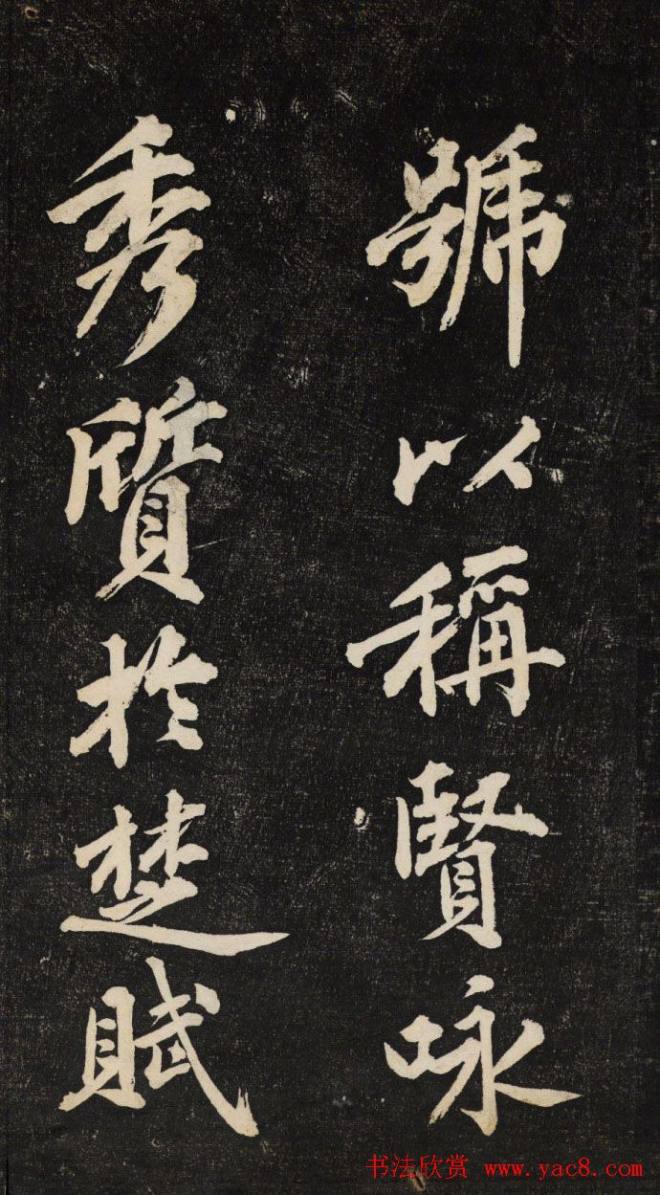 號以稱賢咏
秀質於楚賦
书法欣赏 www.yac8.com